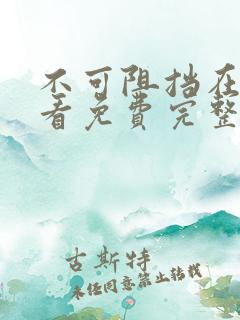 不可阻挡在
看免费完整
古斯特
未经同意禁止转载